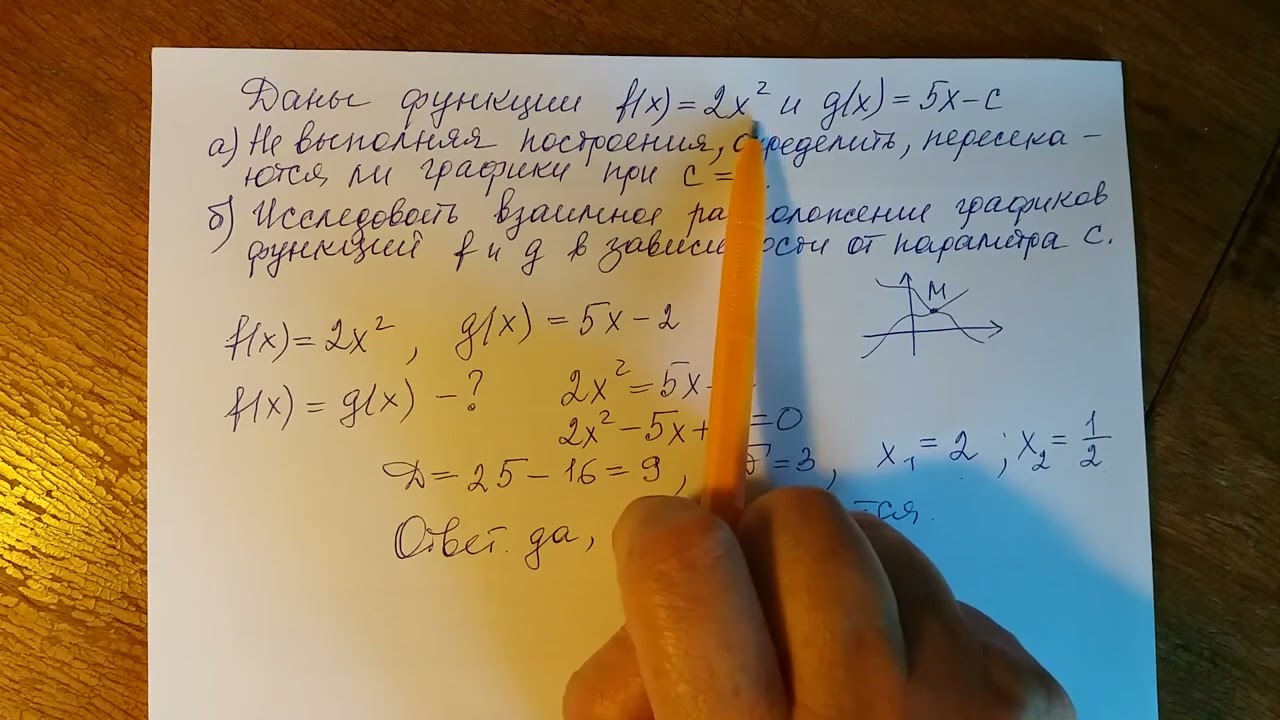 Даны функции f(x) = 2x² и g(x) = 5x – c
а) Не выполняя построения, определить, пересека –
ются ли графики при c =
б) Исследовать взаимное расположение графиков
функций f и g в зависимости от параметра c.
M
f(x) = 2x², g(x) = 5x – 2
f(x) = g(x) – ? 2x² = 5x
2x² – 5x + = 0
D = 25 – 16 = 9, = 3, x₁ = 2 ; x₂ = 1/2
Ответ. да,